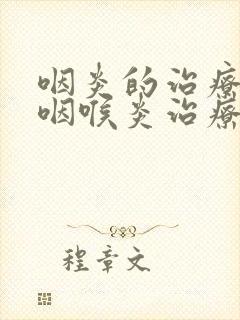 咽炎的治疗
咽喉炎治疗
程章文